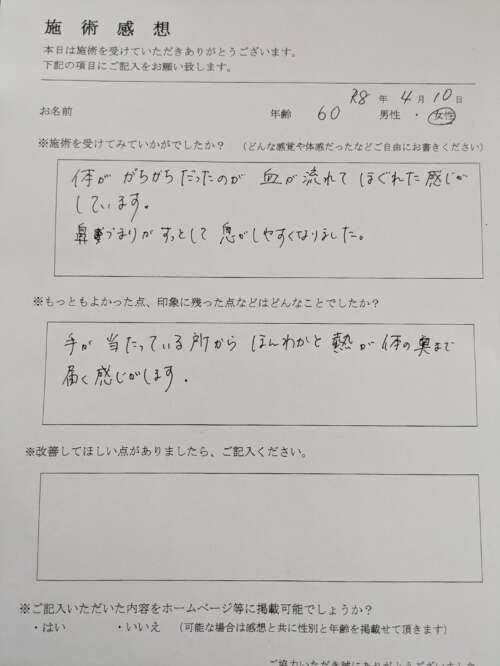 施術感想
本日は施術を受けていただきありがとうございます。
下記の項目にご記入をお願い致します。
R8 年 4 月 10 日
お名前 年齢 60 男性 ・ 女性
※施術を受けてみていかがでしたか? (どんな感覚や体感だったなどご自由にお書きください)
体が がちがちだったのが 血が流れて ほぐれた感じが
しています。
鼻づまりが すっとして 息がしやすくなりました。
※もっともよかった点、印象に残った点などはどんなことでしたか?
手が 当たっている所から ほんわかと 熱が 体の奥まで
届く感じがします。
※改善してほしい点がありましたら、ご記入ください。
※ご記入いただいた内容をホームページ等に掲載可能でしょうか?
・はい ・いいえ (可能な場合は感想と共に性別と年齢を掲載せて頂きます)
ご協力いただき誠にありがとうございました